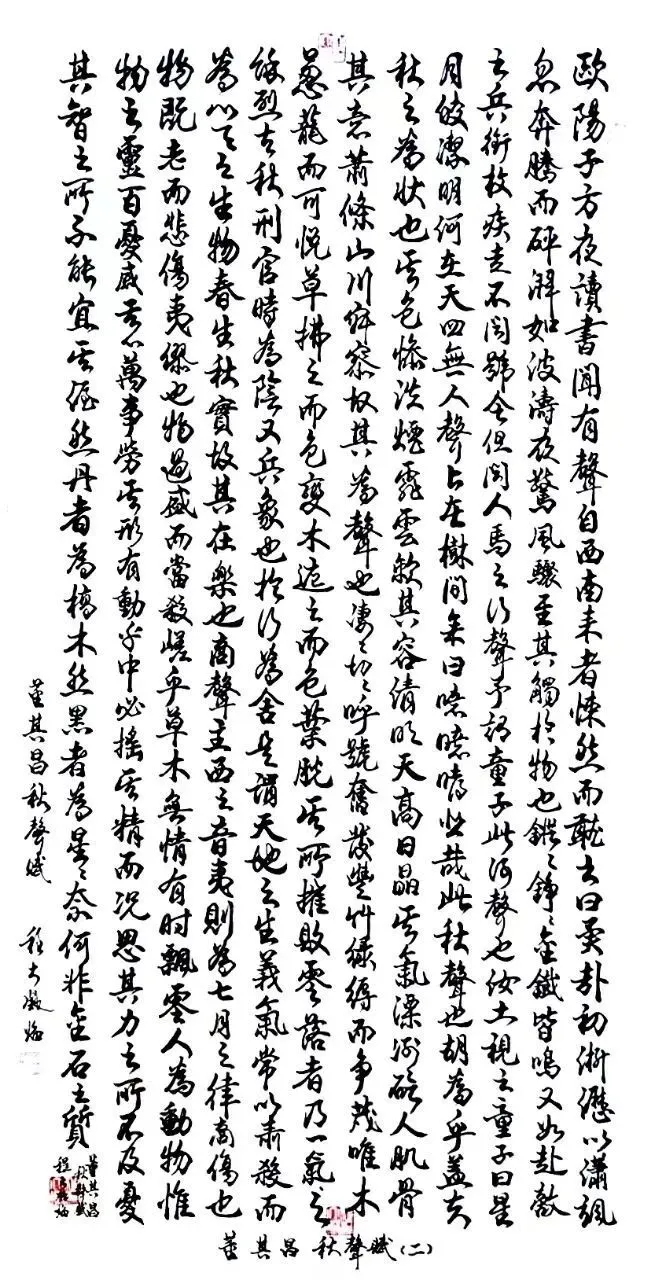 歐陽子方夜讀書聞有聲自西南来者悚然而聽之曰異哉初淅瀝以瀟颯
忽奔騰而砰湃如波濤夜驚風驟至其觸於物也鏦〻錚〻金鐵皆鳴又如赴敵
之兵銜枚疾走不聞號令但聞人馬之行聲予謂童子此何聲也汝出視之童子曰星
月皎潔明河在天四無人聲〻在樹間余曰噫噫嘻悲哉此秋聲也胡為乎蓋夫
秋之為狀也其色慘淡煙霏雲斂其容清明天高日晶其氣凛冽砭人肌骨
其意蕭條山川寂寥故其為聲也凄〻切〻呼號奮發豐草緑縟而争茂唯木
葱蘢而可悦草拂之而色變木遭之而色葉脫其所摧敗零落者乃一氣之
餘烈夫秋刑官時為陰又兵象也於行為金是謂天地之生義氣常以肅殺而
為心天之生物春生秋實故其在樂也商聲主西之音夷則為七月之律商傷也
物既老而悲傷夷繆也物過盛而當殺嗟乎草木無情有时飄零人為動物惟
物之靈百憂感其心萬事勞其形有動乎中必搖其精而况思其力之所不及憂
其智之所不能宜其渥然丹者為槁木然黑者為星〻奈何非金石之質
董其昌秋聲賦
董其昌
董其昌秋聲賦(二)